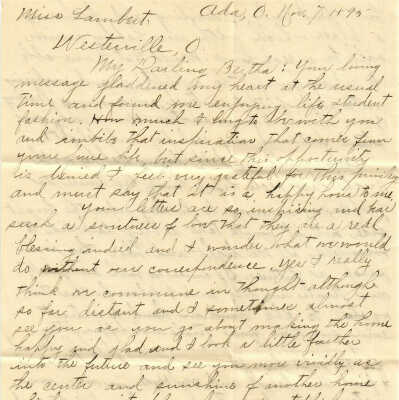 Miss Lambert. Ada, O. Nov. 7, 1895
Westerville, O.
My Darling Bertha: Your loving
message gladdened my heart at the usual
time and found me enjoying life student
fashion. How much I long to be with you
and imbibe that inspiration that comes from
your pure life, but since this opportunity
is denied I feel very grateful for this privilege
and must say that it is a happy hour to me.
Your letters are so inspiring and have
such a sweetness of love that they are a real
blessing indeed and I wonder what we would
do without our correspondence. Yes I really
think we commune in thought although
so far distant and I sometimes almost
see you as you go about making the home
happy and glad and I look a little farther
into the future and see you more vividly as
the center and sunshine of another home